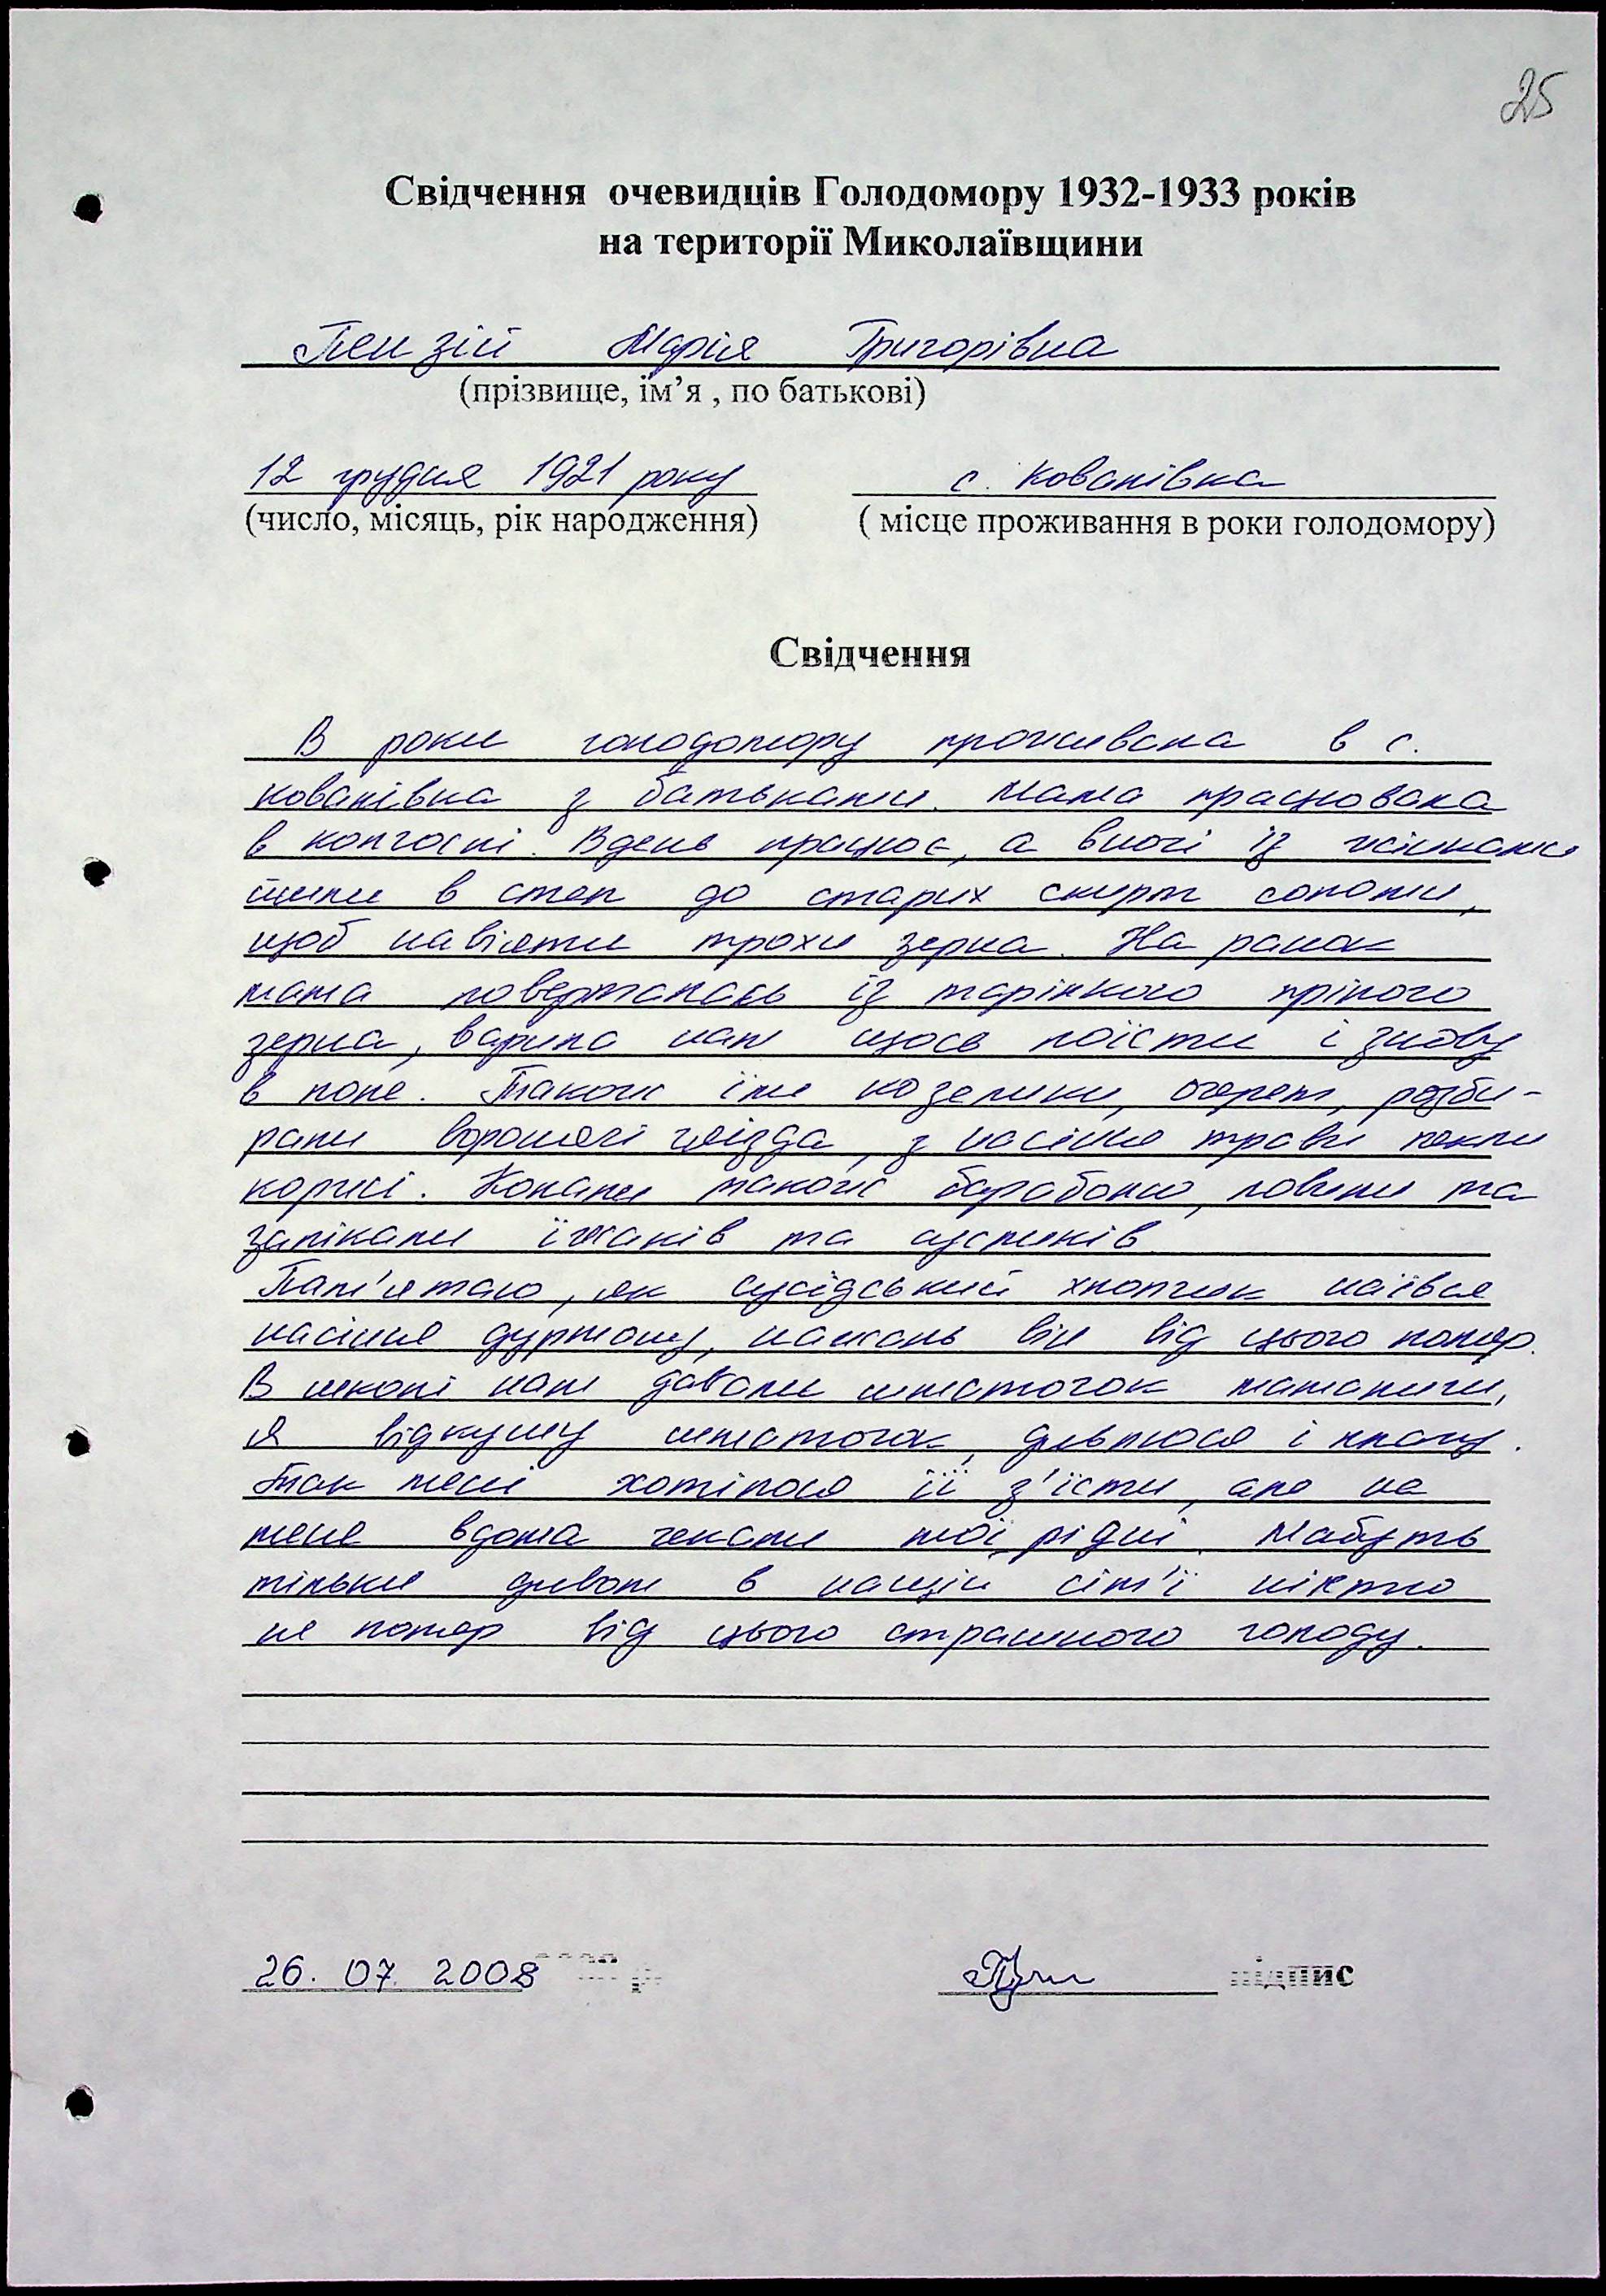 25
Свідчення очевидців Голодомору 1932-1933 років
на території Миколаївщини
Пензій Марія Григорівна
(прізвище, ім’я , по батькові)
12 грудня 1921 року с. Ковалівка
(число, місяць, рік народження) ( місце проживання в роки голодомору)
Свідчення
В роки голодомору проживала в с.
Ковалівка з батьками. Мама працювала
в колгоспі. Вдень працює, а вночі із жінками
йшли в степ до старих скирт соломи,
щоб навіяти трохи зерна. На ранок
мама повернталась із торінкого прілого
зерна, варила нам щось поїсти і знову
в поле. Також їли козелики, очерет, розби-
рали воронячі гнізда, з насіння трави пекли
коржі. Копали також бараболю, ловили та
запікали їжаків та сусликів.
Пам'ятаю, як сусідський хлопчик наївся
насіння дурману, нажаль він від цього помер.
В школі нам давали шматочок мамалиги,
я відкушу шматочок, дивлюся і плачу.
Так мені хотілося її з'їсти, але на
мене вдома чекали мої рідні. Мабуть
тільки дивом в нашій сім'ї ніхто
не помер від цього страшного голоду.
26. 07. 2008 р. підпис